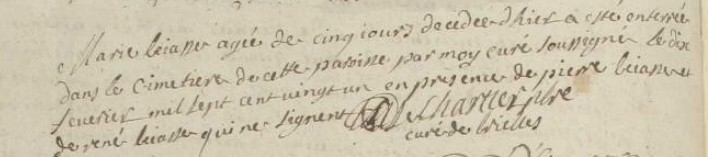 Marie beiasse agée de cinq jours decedée d'hier a esté enterrée
dans le Cimetiere de cette paroisse par moy curé soussigné le dix
feurier mil sept cent vingt un en presence de pierre beiasse et
de rené beiasse qui ne signent Chartier pbre
curé de brielles